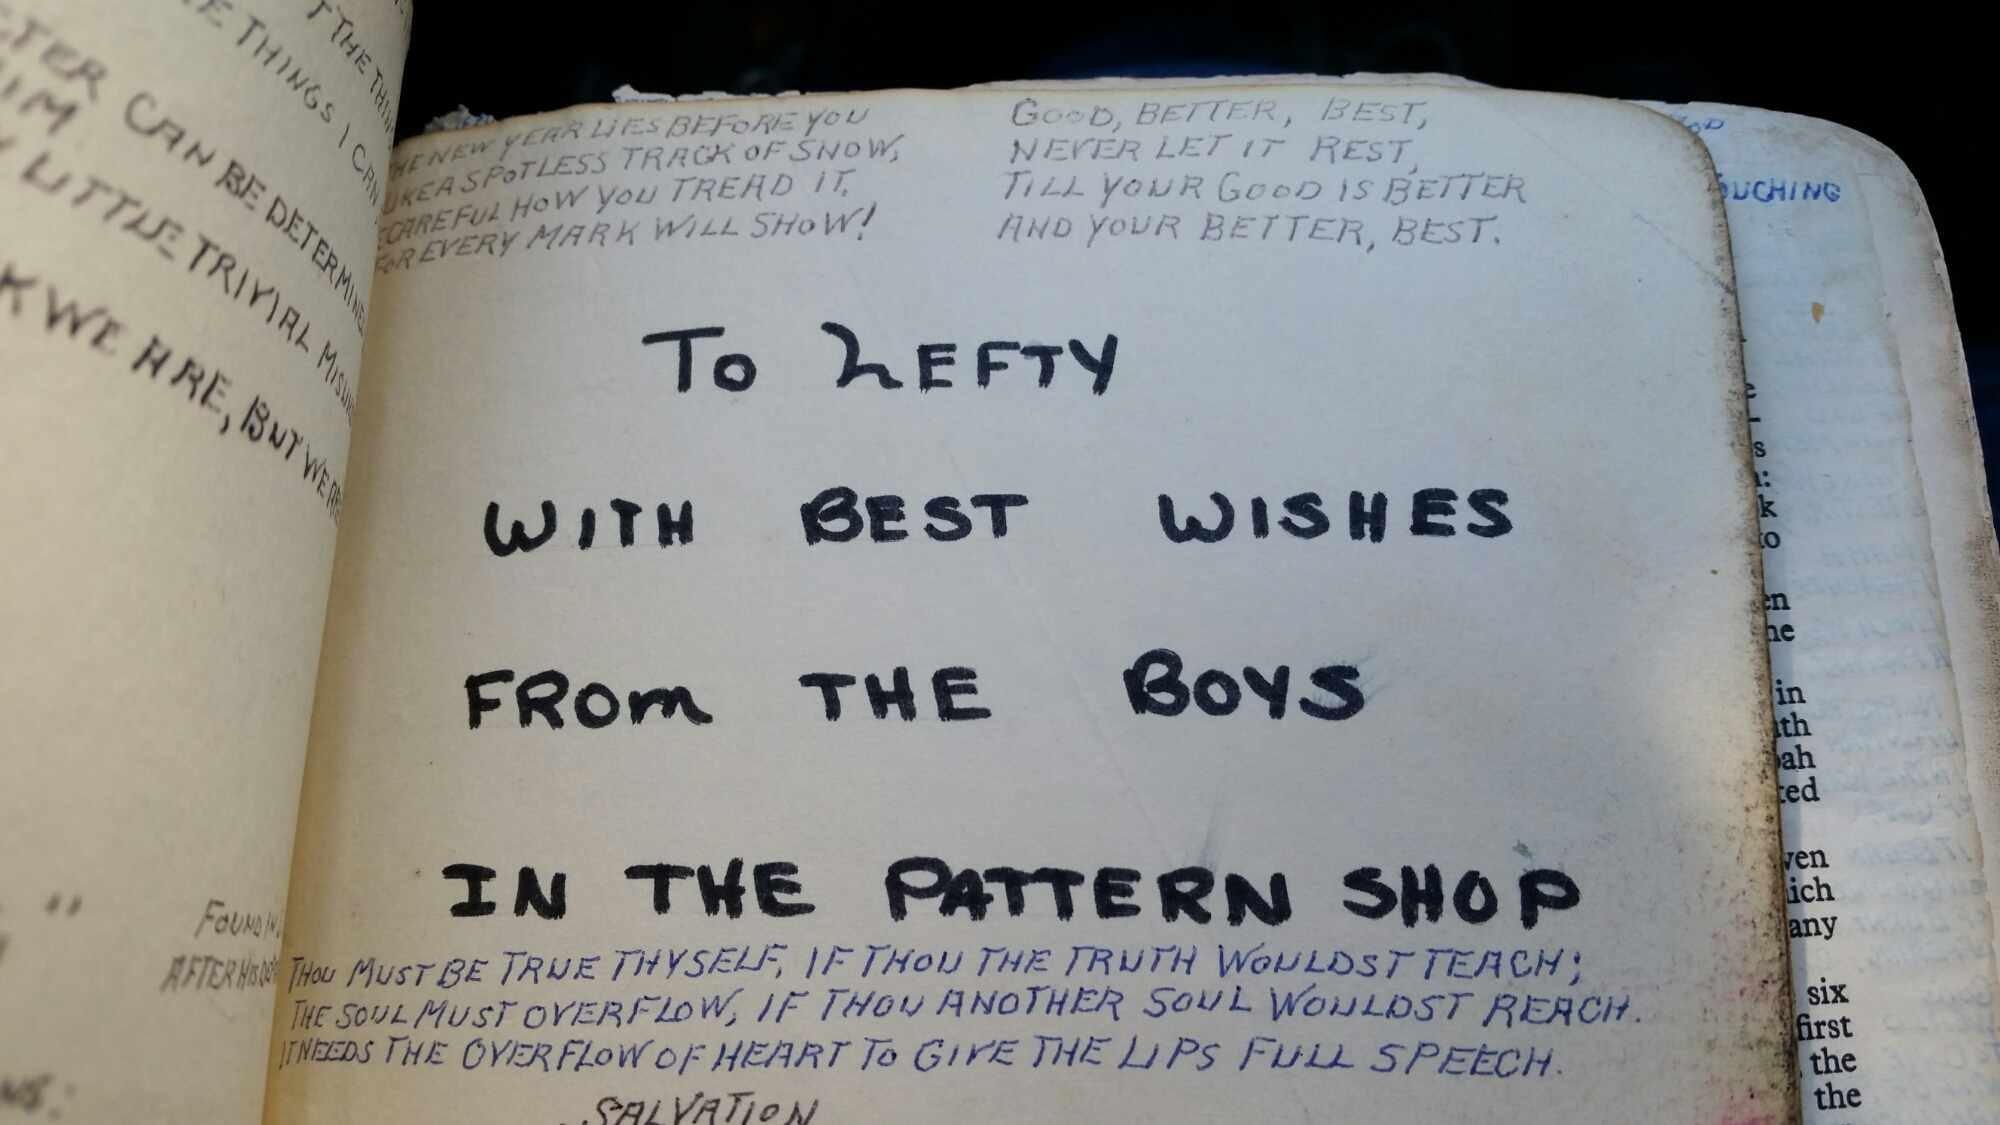 T THE THIN
E THINGS I CAN
CTER CAN BE DETERMINE
HIM
Y LITTLE TRIVIAL MISUN
K WE ARE, BUT WE ARE
FOUND IN
AFTER HIS DE
THE NEW YEAR LIES BEFORE YOU
LIKE A SPOTLESS TRACK OF SNOW,
E CAREFUL HOW YOU TREAD IT,
FOR EVERY MARK WILL SHOW!
GOOD, BETTER, BEST,
NEVER LET IT REST,
TILL YOUR GOOD IS BETTER
AND YOUR BETTER, BEST.
TO LEFTY
WITH BEST WISHES
FROM THE BOYS
IN THE PATTERN SHOP
THOU MUST BE TRUE THYSELF, IF THOU THE TRUTH WOULDST TEACH;
THE SOUL MUST OVERFLOW, IF THOU ANOTHER SOUL WOULDST REACH.
IT NEEDS THE OVERFLOW OF HEART TO GIVE THE LIPS FULL SPEECH.
SALVATION
OUCHING
s
k
to
en
he
in
ath
bah
ted
ven
ich
any
six
first
the
the